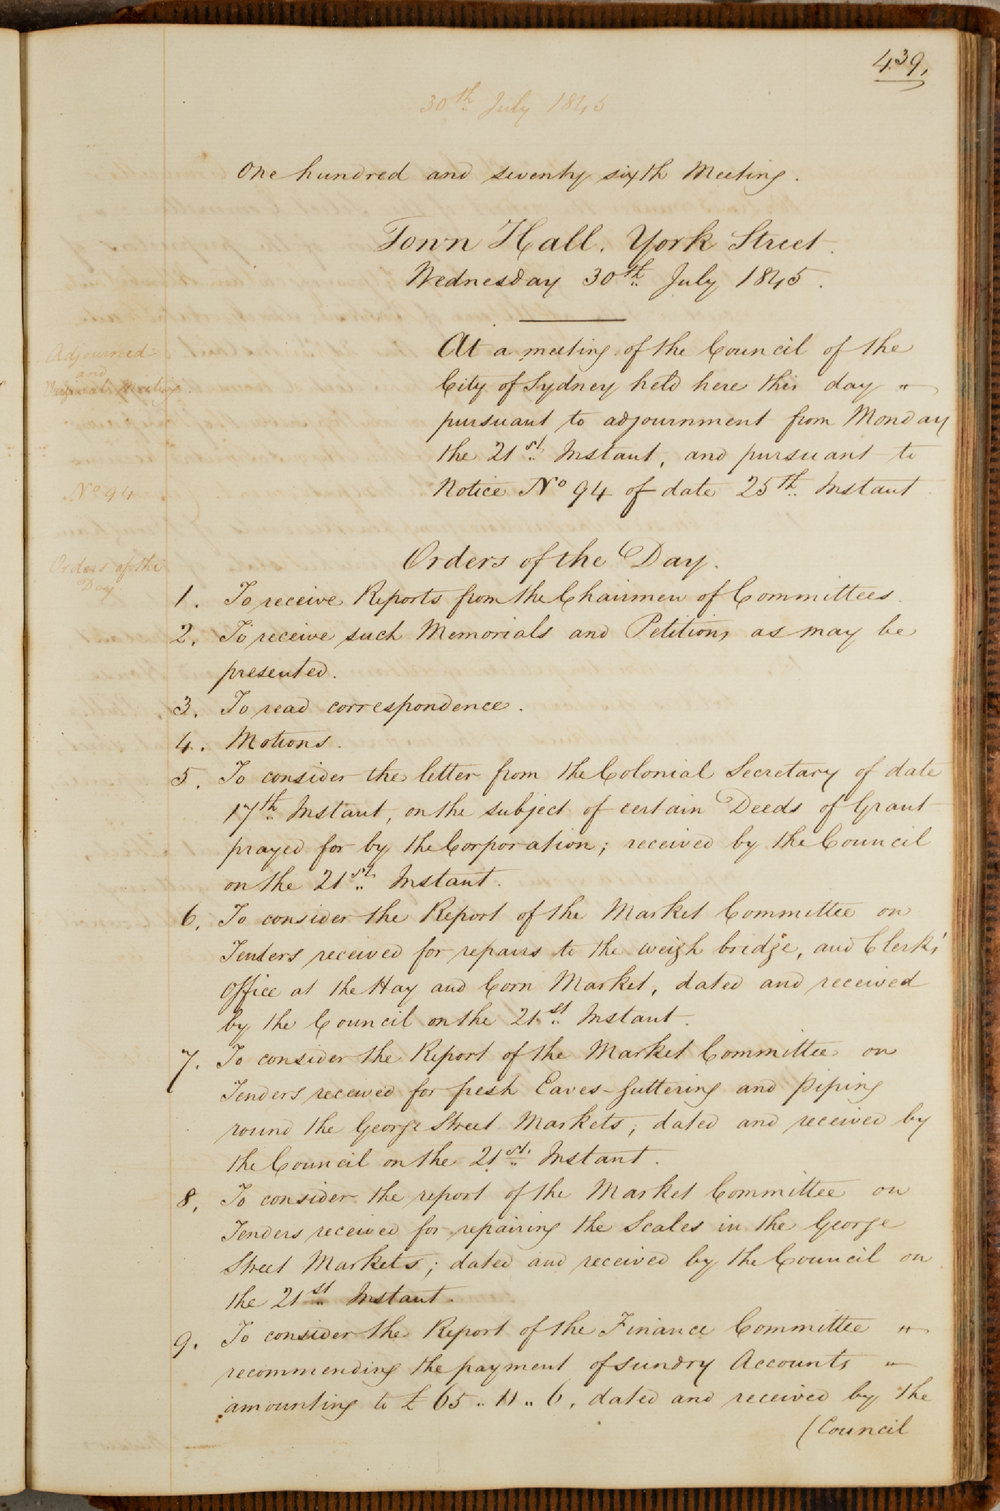 439.
30th July 1845
One hundred and seventy sixth Meeting.
Town Hall. York Street.
Wednesday 30th July 1845.
Adjourned
and
Special Meeting
At a meeting of the Council of the
City of Sydney held here this day "
pursuant to adjournment from Monday
the 21st Instant, and pursuant to
No 94
Notice No 94 of date 25th Instant
Orders of the
Day
Orders of the Day.
1. To receive Reports from the Chairmen of Committees.
2. To receive such Memorials and Petitions as may be
presented.
3. To read correspondence.
4. Motions.
5. To consider the letter from the Colonial Secretary of date
17th Instant, on the subject of certain Deeds of Grant
prayed for by the Corporation; received by the Council
on the 21st Instant.
6. To consider the Report of the Market Committee on
Tenders received for repairs to the weigh bridge, and Clerks'
Office at the Hay and Corn Market, dated and received
by the Council on the 21st Instant.
7. To consider the Report of the Market Committee on
Tenders received for fresh Eaves-guttering and piping
round the George Street Markets, dated and received by
the Council on the 21st Instant.
8. To consider the report of the Market Committee on
Tenders received for repairing the Scales in the George
Street Markets; dated and received by the Council on
the 21st Instant.
9. To consider the Report of the Finance Committee "
recommending the payment of sundry Accounts "
amounting to £65 .. 11 .. 6, dated and received by the
(Council